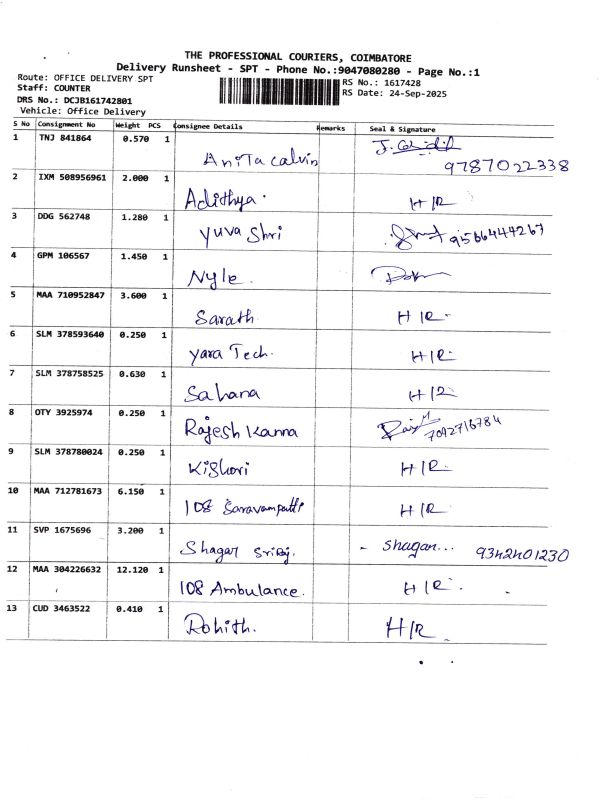 THE PROFESSIONAL COURIERS, COIMBATORE
Delivery Runsheet - SPT - Phone No.:9047080280 - Page No.:1
Route: OFFICE DELIVERY SPT
RS No.: 1617428
Staff: COUNTER
RS Date: 24-Sep-2025
DRS No.: DCJB161742801
Vehicle: Office Delivery
S No Consignment No Weight PCS Consignee Details Remarks Seal & Signature
1 TNJ 841864 0.570 1 Anita Calvin 9787022338
2 IXM 508956961 2.000 1 Adithya. H/R
3 DDG 562748 1.280 1 Yuva Shri 9566444267
4 GPM 106567 1.450 1 Nyle.
5 MAA 710952847 3.600 1 Sarath. H/R.
6 SLM 378593640 0.250 1 Yara Tech. H/R.
7 SLM 378758525 0.630 1 Sahana H/R
8 OTY 3925974 0.250 1 Rajesh Kanna 7092716784
9 SLM 378780024 0.250 1 Kishori H/R.
10 MAA 712781673 6.150 1 108 Saravampatti H/R.
11 SVP 1675696 3.200 1 Shagar Sriraj. - Shagar... 9342401230
12 MAA 304226632 12.120 1 108 Ambulance. H/R.
13 CUD 3463522 0.410 1 Rohith. H/R